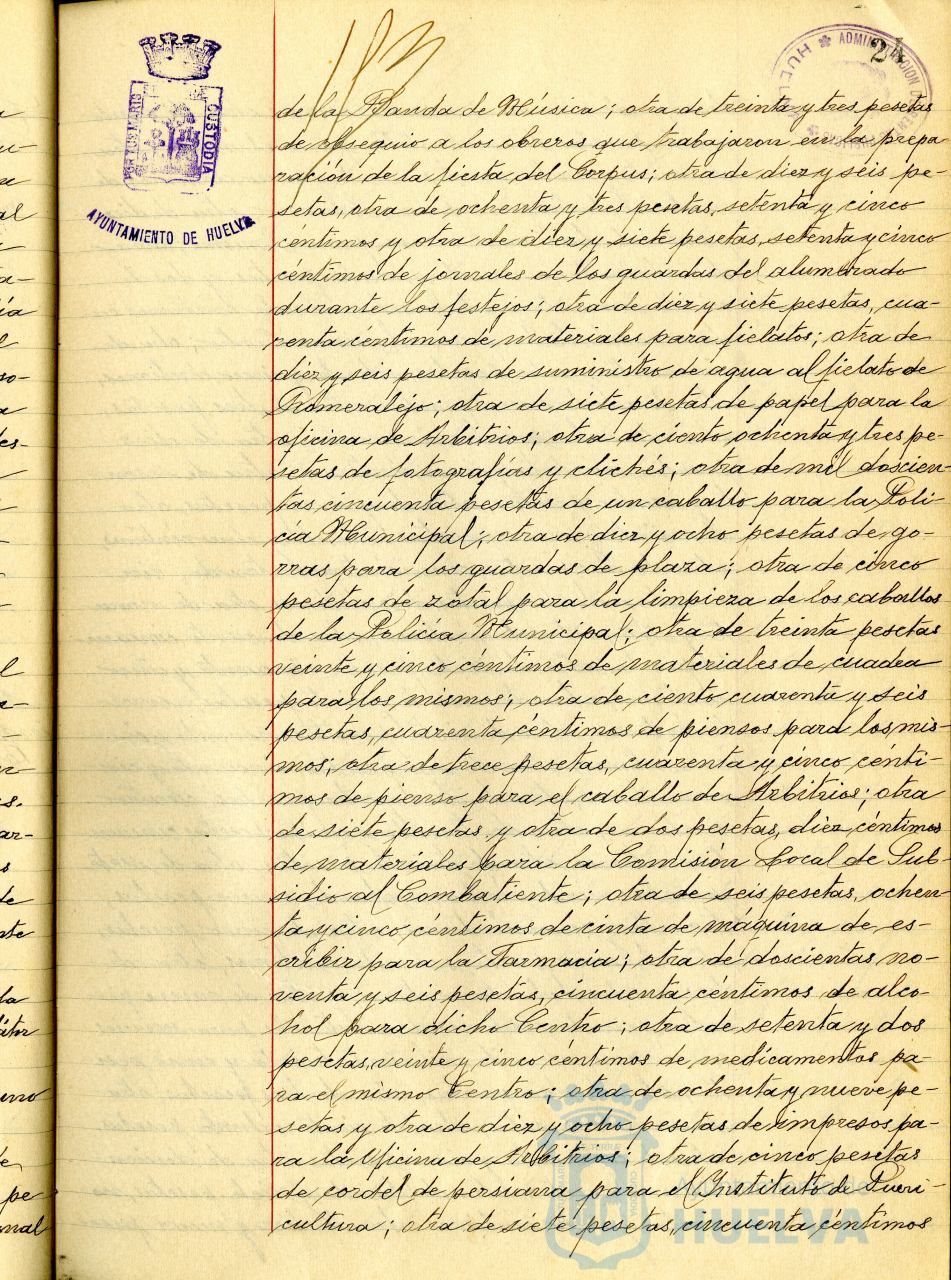 PORTUS MARIS
CUSTODIA
AYUNTAMIENTO DE HUELVA
ADMINISTRACION
de la Banda de Música; otra de treinta y tres pesetas
de obsequio a los obreros que trabajaron en la prepa
ración de la fiesta del Corpus; otra de diez y seis pe-
setas, otra de ochenta y tres pesetas, setenta y cinco
céntimos y otra de diez y siete pesetas, setenta y cinco
céntimos de jornales de los guardas del alumbrado
durante los festejos; otra de diez y siete pesetas, cua-
renta céntimos de materiales para fielatos; otra de
diez y seis pesetas de suministro de agua al fielato de
Romeralejo; otra de siete pesetas de papel para la
oficina de Arbitrios; otra de ciento ochenta y tres pe-
setas de fotografías y clichés; otra de mil doscien-
tas cincuenta pesetas de un caballo para la Poli-
cía Municipal; otra de diez y ocho pesetas de go-
rras para los guardas de plaza; otra de cinco
pesetas de zotal para la limpieza de los caballos
de la Policía Municipal; otra de treinta pesetas
veinte y cinco céntimos de materiales de cuadra
para los mismos; otra de ciento cuarenta y seis
pesetas, cuarenta céntimos de piensos para los mis-
mos; otra de trece pesetas, cuarenta y cinco cénti-
mos de pienso para el caballo de Arbitrios; otra
de siete pesetas y otra de dos pesetas, diez céntimos
de materiales para la Comisión Local de Sub-
sidio al Combatiente; otra de seis pesetas, ochen
ta y cinco céntimos de cinta de máquina de es-
cribir para la Farmacia; otra de doscientas no-
venta y seis pesetas, cincuenta céntimos de alco-
hol para dicho Centro; otra de setenta y dos
pesetas, veinte y cinco céntimos de medicamentos pa-
ra el mismo Centro; otra de ochenta y nueve pe-
setas y otra de diez y ocho pesetas de impresos pa-
ra la Oficina de Arbitrios; otra de cinco pesetas
de cordel de persiana para el Instituto de Pueri-
cultura; otra de siete pesetas, cincuenta céntimos
HUELVA